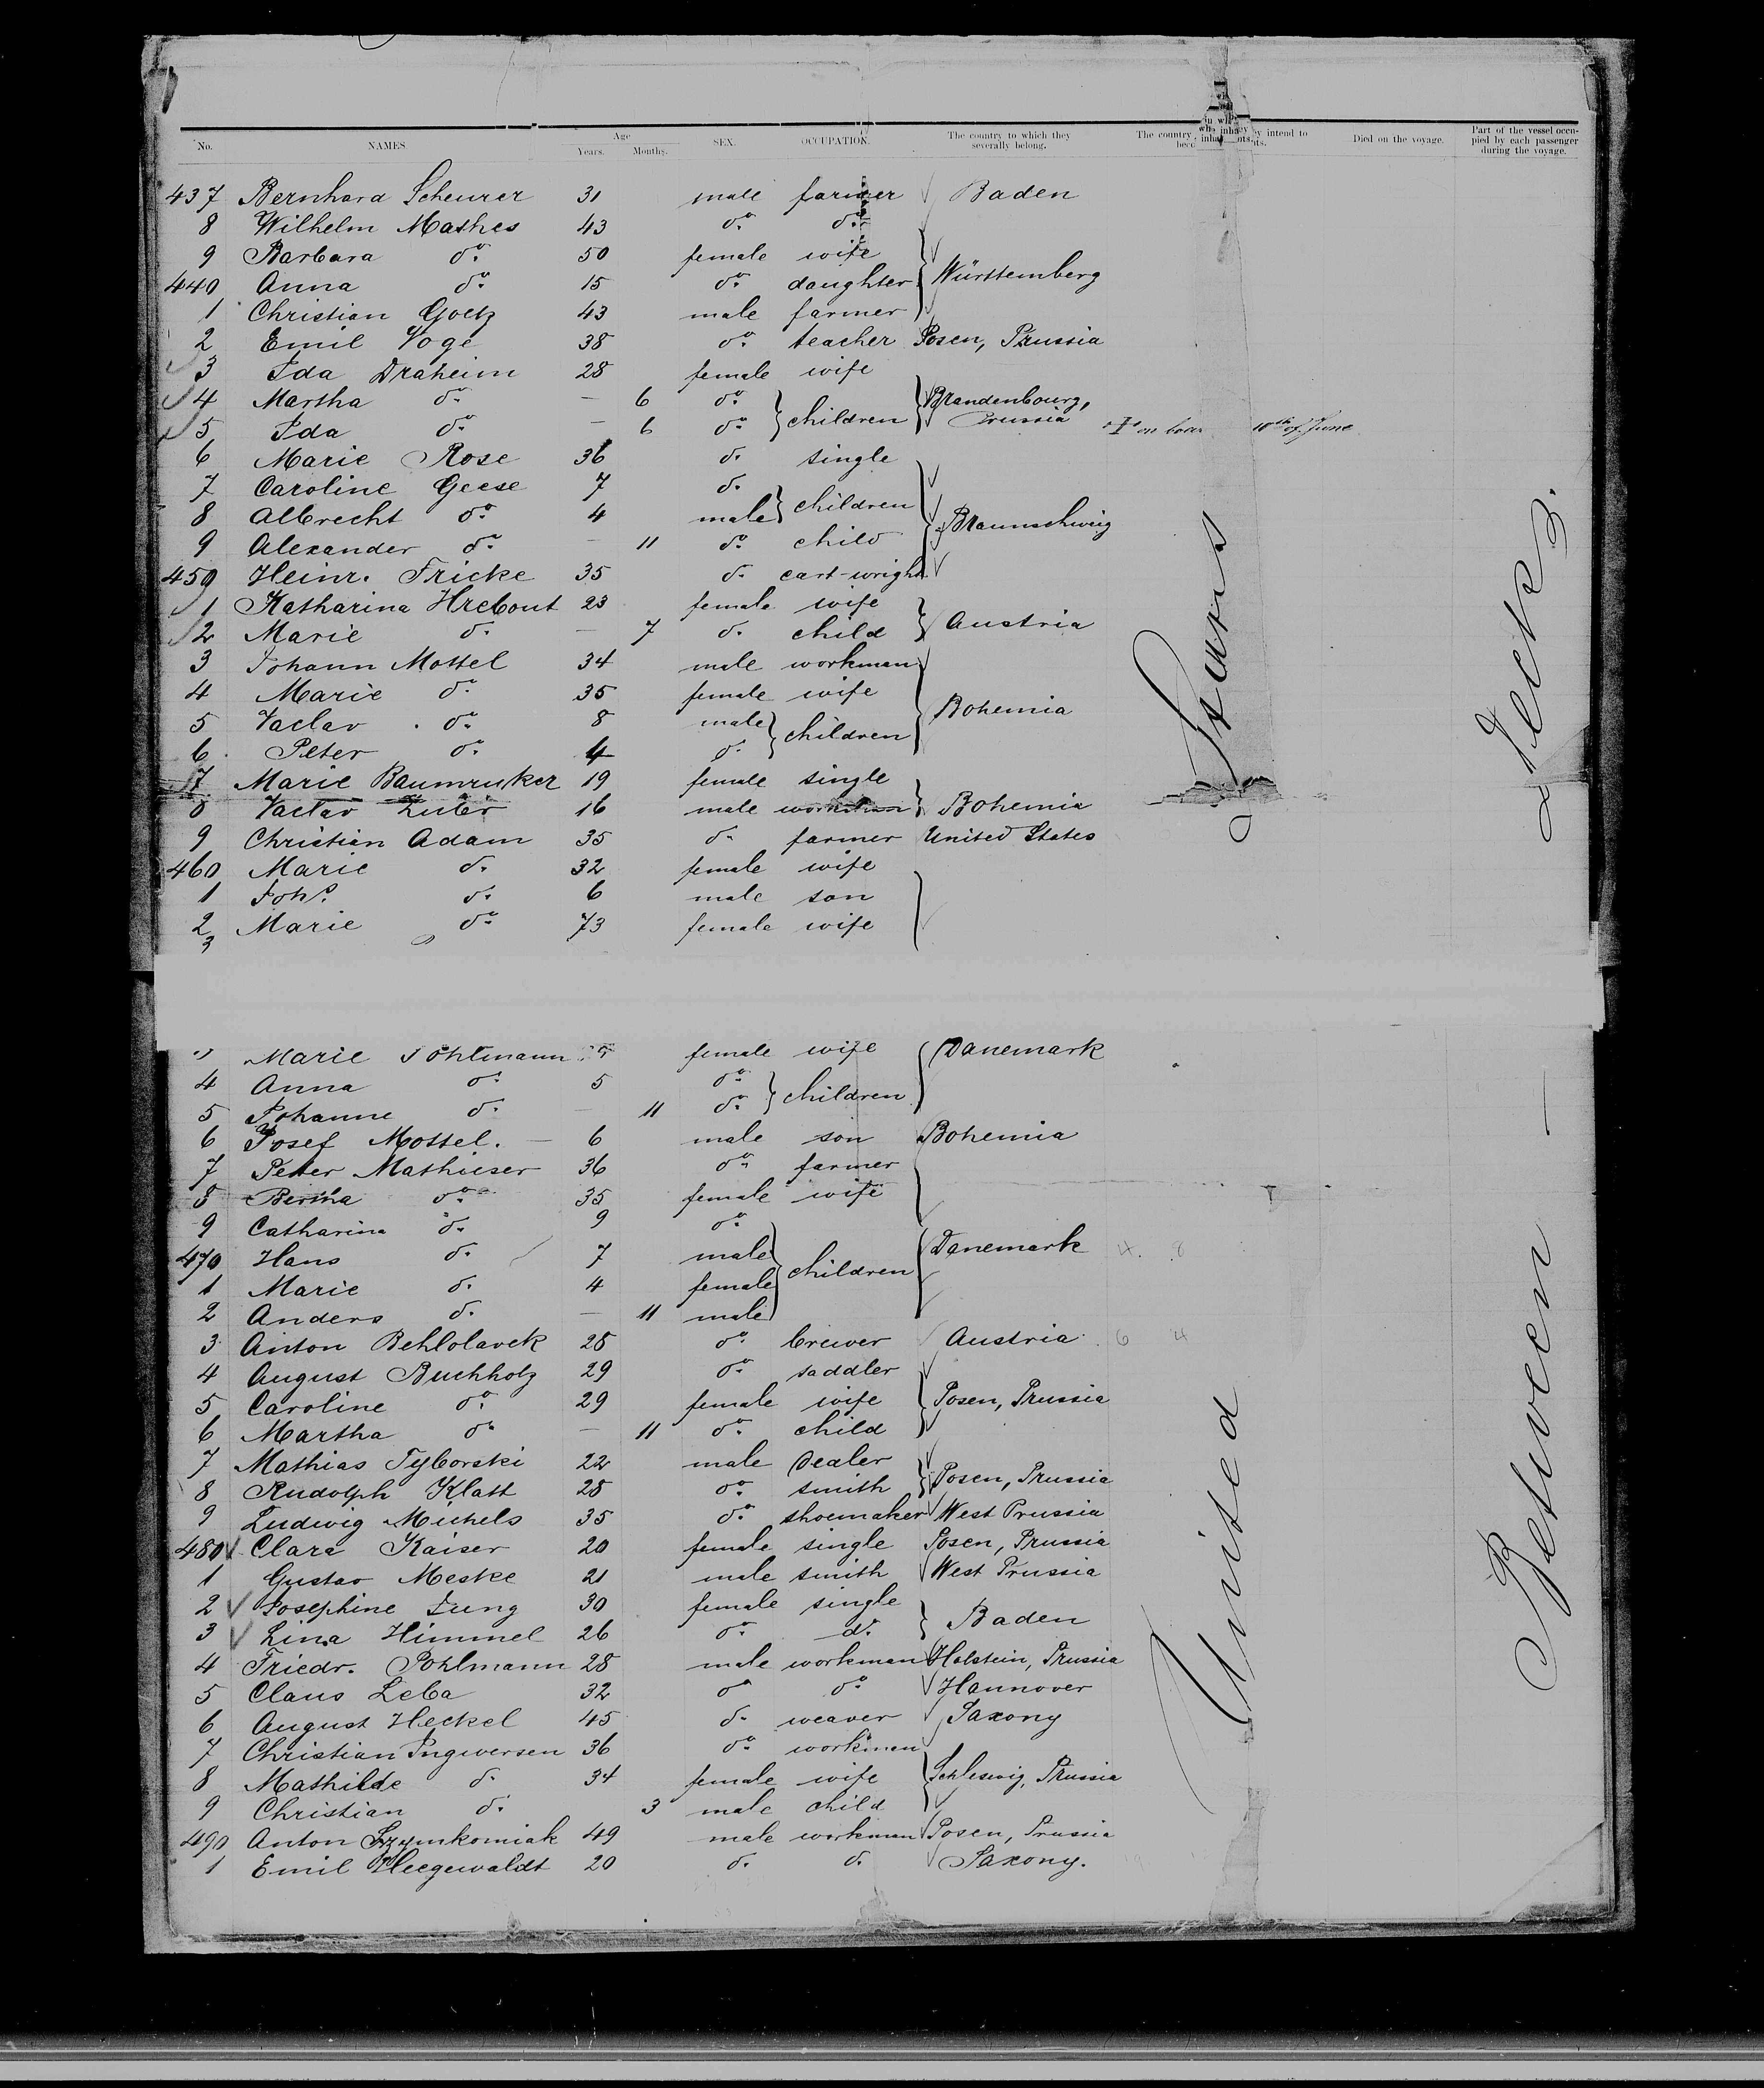 No. NAMES Age Years. Months. SEX. OCCUPATION. The country to which they severally belong. The country intend to Died on the voyage. Part of the vessel occupied by each passenger during the voyage.
437 Bernhard Scheurer 31 male farmer Baden
8 Wilhelm Mathes 43 do. do.
9 Barbara do. 50 female wife
440 Anna do. 15 do. daughter Württemberg
1 Christian Goetz 43 male farmer
2 Emil Voge 38 do. teacher Posen, Prussia
3 Ida Draheim 28 female wife
4 Martha do. — 6 do. Brandenbourg,
5 Ida do. — 6 do. children Prussia on boar 10th of June
6 Marie Rose 36 do. single
7 Caroline Geese 7 do.
8 Albrecht do. 4 male children Braunschweig
9 Alexander do. — 11 do. child
450 Heinr. Fricke 35 do. cart-wright
1 Katharina Hrebout 23 female wife
2 Marie do. — 7 do. child Austria
3 Johann Mottel 34 male workman
4 Marie do. 35 female wife Bohemia
5 Vaclav do. 8 male children
6 Peter do. 4 do.
7 Marie Baumruker 19 female single
8 Vaclav 16 male workman Bohemia
9 Christian Adam 35 do. farmer United States
460 Marie do. 32 female wife
1 Johs. do. 6 male son
2 Marie do. 73 female wife
3
Marie Pohlmann female wife Danemark
4 Anna do. 5 do. children
5 Johanne do. — 11 do.
6 Josef Mottel. — 6 male son Bohemia
7 Peter Mathieser 36 do. farmer
8 Bertha do. 35 female wife
9 Catharina do. 9 do.
470 Hans do. 7 male children Danemark
1 Marie do. 4 female
2 Anders do. — 11 male
3 Anton Behlolavek 28 do. brewer Austria
4 August Buchholz 29 do. saddler
5 Caroline do. 29 female wife Posen, Prussia
6 Martha do. — 11 do. child
7 Mathias Tyborski 22 male dealer
8 Rudolph Klatt 28 do. smith Posen, Prussia
9 Ludwig Michels 35 do. shoemaker West Prussia
480 Clara Kaiser 20 female single Posen, Prussia
1 Gustav Meske 21 male smith West Prussia
2 Josephine Jung 30 female single
3 Lina Himmel 26 do. do. Baden
4 Friedr. Pohlmann 28 male workman Holstein, Prussia
5 Claus Leba 32 do do. Hannover
6 August Heckel 45 do. weaver Saxony
7 Christian Ingwersen 36 do. workman
8 Mathilde do. 34 female wife Schleswig, Prussia
9 Christian do. 3 male child
490 Anton Szymkomiak 49 male workman Posen, Prussia
1 Emil Heegewaldt 20 do. do. Saxony.
United States
Between Decks.